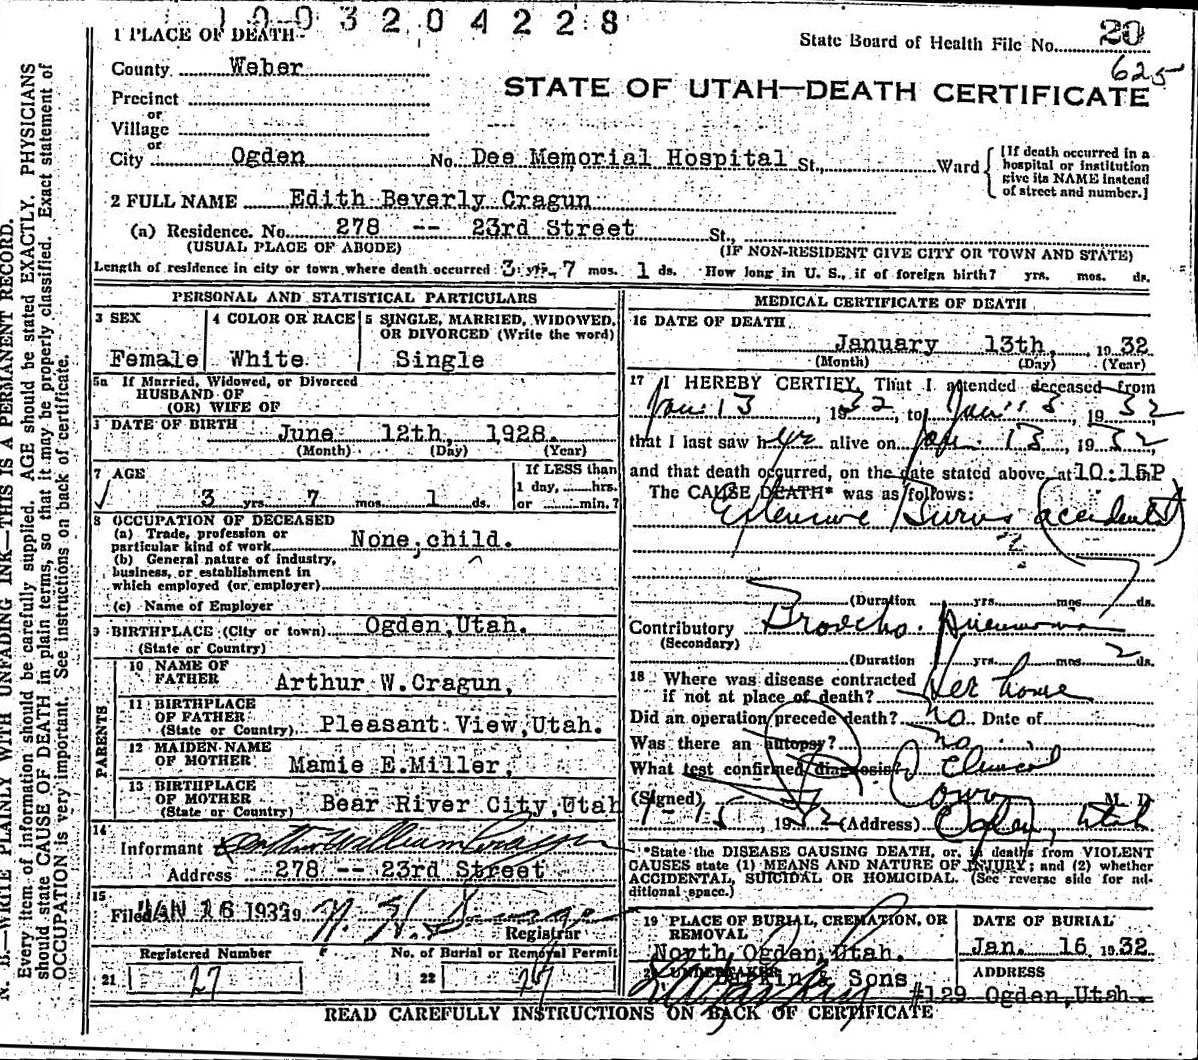 1003204228
1 PLACE OF DEATH
State Board of Health File No. 20
625
County Weber
STATE OF UTAH—DEATH CERTIFICATE
Precinct
or
Village
or
City Ogden No. Dee Memorial Hospital St., Ward
[If death occurred in a
hospital or institution
give its NAME instead
of street and number.]
2 FULL NAME Edith Beverly Cragun
(a) Residence. No. 278 -- 23rd Street St.,
(USUAL PLACE OF ABODE) (IF NON-RESIDENT GIVE CITY OR TOWN AND STATE)
Length of residence in city or town where death occurred 3 yrs. 7 mos. 1 ds. How long in U. S., if of foreign birth? yrs. mos. ds.
PERSONAL AND STATISTICAL PARTICULARS
3 SEX
Female
4 COLOR OR RACE
White
5 SINGLE, MARRIED, WIDOWED,
OR DIVORCED (Write the word)
Single
5a If Married, Widowed, or Divorced
HUSBAND OF
(OR) WIFE OF
DATE OF BIRTH June 12th, 1928.
(Month) (Day) (Year)
7 AGE
3 yrs. 7 mos. 1 ds.
If LESS than
1 day, hrs.
or min.?
8 OCCUPATION OF DECEASED
(a) Trade, profession or
particular kind of work None, child.
(b) General nature of industry,
business, or establishment in
which employed (or employer)
(c) Name of Employer
9 BIRTHPLACE (City or town) Ogden, Utah.
(State or Country)
PARENTS
10 NAME OF
FATHER Arthur W. Cragun,
11 BIRTHPLACE
OF FATHER
(State or Country) Pleasant View, Utah.
12 MAIDEN NAME
OF MOTHER Mamie E. Miller,
13 BIRTHPLACE
OF MOTHER
(State or Country) Bear River City, Utah
14
Informant Arthur William Cragun
Address 278 -- 23rd Street
15
Filed JAN 16 1932 19
Registrar
Registered Number
21 27
No. of Burial or Removal Permit
22 27
MEDICAL CERTIFICATE OF DEATH
16 DATE OF DEATH
January 13th, 1932
(Month) (Day) (Year)
17 I HEREBY CERTIFY, That I attended deceased from
Jan. 13, 1932, to Jan. 13, 1932
that I last saw her alive on Jan. 13, 1932
and that death occurred, on the date stated above, at 10:15P
The CAUSE DEATH* was as follows:
Extensive Burns accidental
(Duration yrs. mos. ds.
Contributory Broncho. Pneumonia
(Secondary)
(Duration yrs. mos. 2 ds.
18 Where was disease contracted
if not at place of death? Her home
Did an operation precede death? no Date of
Was there an autopsy? no
What test confirmed diagnosis? Clinical
(Signed) M. D.
1-15, 1932 (Address) Ogden, Utah
*State the DISEASE CAUSING DEATH, or, in deaths from VIOLENT
CAUSES state (1) MEANS AND NATURE OF INJURY; and (2) whether
ACCIDENTAL, SUICIDAL OR HOMICIDAL. (See reverse side for ad-
ditional space.)
19 PLACE OF BURIAL, CREMATION, OR
REMOVAL
North Ogden, Utah.
DATE OF BURIAL
Jan. 16 1932
UNDERTAKER
Larkin & Sons
ADDRESS
#129 Ogden, Utah.
READ CAREFULLY INSTRUCTIONS ON BACK OF CERTIFICATE
N. B.—WRITE PLAINLY WITH UNFADING INK—THIS IS A PERMANENT RECORD.
Every item of information should be carefully supplied. AGE should be stated EXACTLY. PHYSICIANS
should state CAUSE OF DEATH in plain terms, so that it may be properly classified. Exact statement of
OCCUPATION is very important. See instructions on back of certificate.